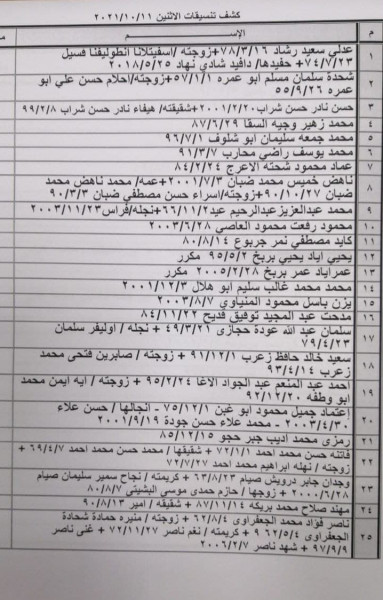 كشف تنسيقات الاثنين ٢٠٢١/١٠/١١
م الإســـم
١ عدلي سعيد رشاد ٧٨/٣/١٦+ زوجته /اسفيتلانا انطوليفنا فسيل
٧٤/٧/٢٣+ حفيدها/ دافيد شادي نهاد ٢٠١٨/٥/٢٥
٢ شحدة سلمان مسلم ابو عمره ٥٧/١/١+زوجته/احلام حسن علي ابو
عمره ٥٥/٩/٢٦
٣ حسن نادر حسن شراب ٢٠٠١/٢/٢٠+شقيقته/ هيفاء نادر حسن شراب ٩٩/٢/٨
٤ محمد زهير وجيه السقا ٨٧/٦/٢٩
٥ محمد جمعه سليمان ابو شلوف ٩٦/٧/١
٦ محمد يوسف راضي محارب ٩١/٣/٧
٧ عماد محمود شحته الاعرج ٨٤/٢/٢٤
٨ ناهض خميس محمد ضبان ٢٠٠١/٧/٣+عمه/ محمد ناهض محمد
ضبان ٩٠/١٠/٢٧+ زوجته/إسراء حسن مصطفي ضبان ٩٠/٣/٣
٩ محمد عبدالعزيز عبدالرحيم عيد ٦٦/١١/٢+نجله/فراس ٢٠٠٣/١١/٢٣
١٠ محمود رفعت محمود العاصي ٢٠٠٣/٦/٢٨
١١ كايد مصطفي نمر جربوع ٨٠/٨/١٤
١٢ يحيي اياد يحيي بريخ ٩٥/٥/٢ مكرر
١٣ عمر اياد عمر بريخ ٢٠٠٥/٢/٢٨ مكرر
١٤ محمد محمد غالب سليم ابو هلال ٢٠٠١/١٢/٣
١٥ يزن باسل محمود المنياوي ٢٠٠٣/٨/٧
١٦ مدحت عبد المجيد توفيق قديح ٨٤/١١/٢٢
١٧ سلمان عبد الله عودة حجازى ٤٩/٣/٢١ + نجله / اوليفر سلمان
٧٩/٤/٢٣
١٨ سعيد خالد حافظ زعرب ٩١/١٢/١ + زوجته / صابرين فتحى محمد
زعرب ٩٣/٤/١٤
١٩ احمد عبد المنعم عبد الجواد الاغا ٩٥/٢/٢٤ + زوجته / ايه ايمن محمد
ابو وطفه ٩٢/١٢/٢٠
٢٠ إعتماد جميل محمود ابو غبن ٧٥/١٢/١ - انجالها / حسن علاء
٢٠٠٣/٤/٣٠ - محمد علاء حسن جودة ٢٠٠١/٩/١٩
٢١ رمزى محمد اديب جبر حجو ٨٥/١٢/١٥
٢٢ فاتنه حسن محمد احمد ٧٢/١/١ + شقيقها / محمد حسن محمد احمد ٦٩/٤/٧ +
زوجته / نهله ابراهيم محمد احمد ٧٢/٧/٢٧
٢٣ وجدان جابر درويش صيام ٦٣/٨/٢٣ + كريمته / نجاح سمير سليمان صيام
٢٠٠٠/٦/٢٨ + زوجها / حازم حمدى موسى البشيتى ٨٠/٨/٧
٢٤ مهند صلاح محمد بريكه ٨٧/١١/١٤ + شقيقه / امير ٩٠/٨/١٣
٢٥ ناصر فؤاد محمد الجعفراوى ٦٢/٨/٤ + زوجته / منيره حمادة شحادة
الجعفراوى ٦٢/٥/٤ + كريمته / نغم ناصر ٧٢/١١/٢٧ + غنى ناصر
٩٧/٩/٩ + شهد ناصر ٢٠٠٦/٢/٧